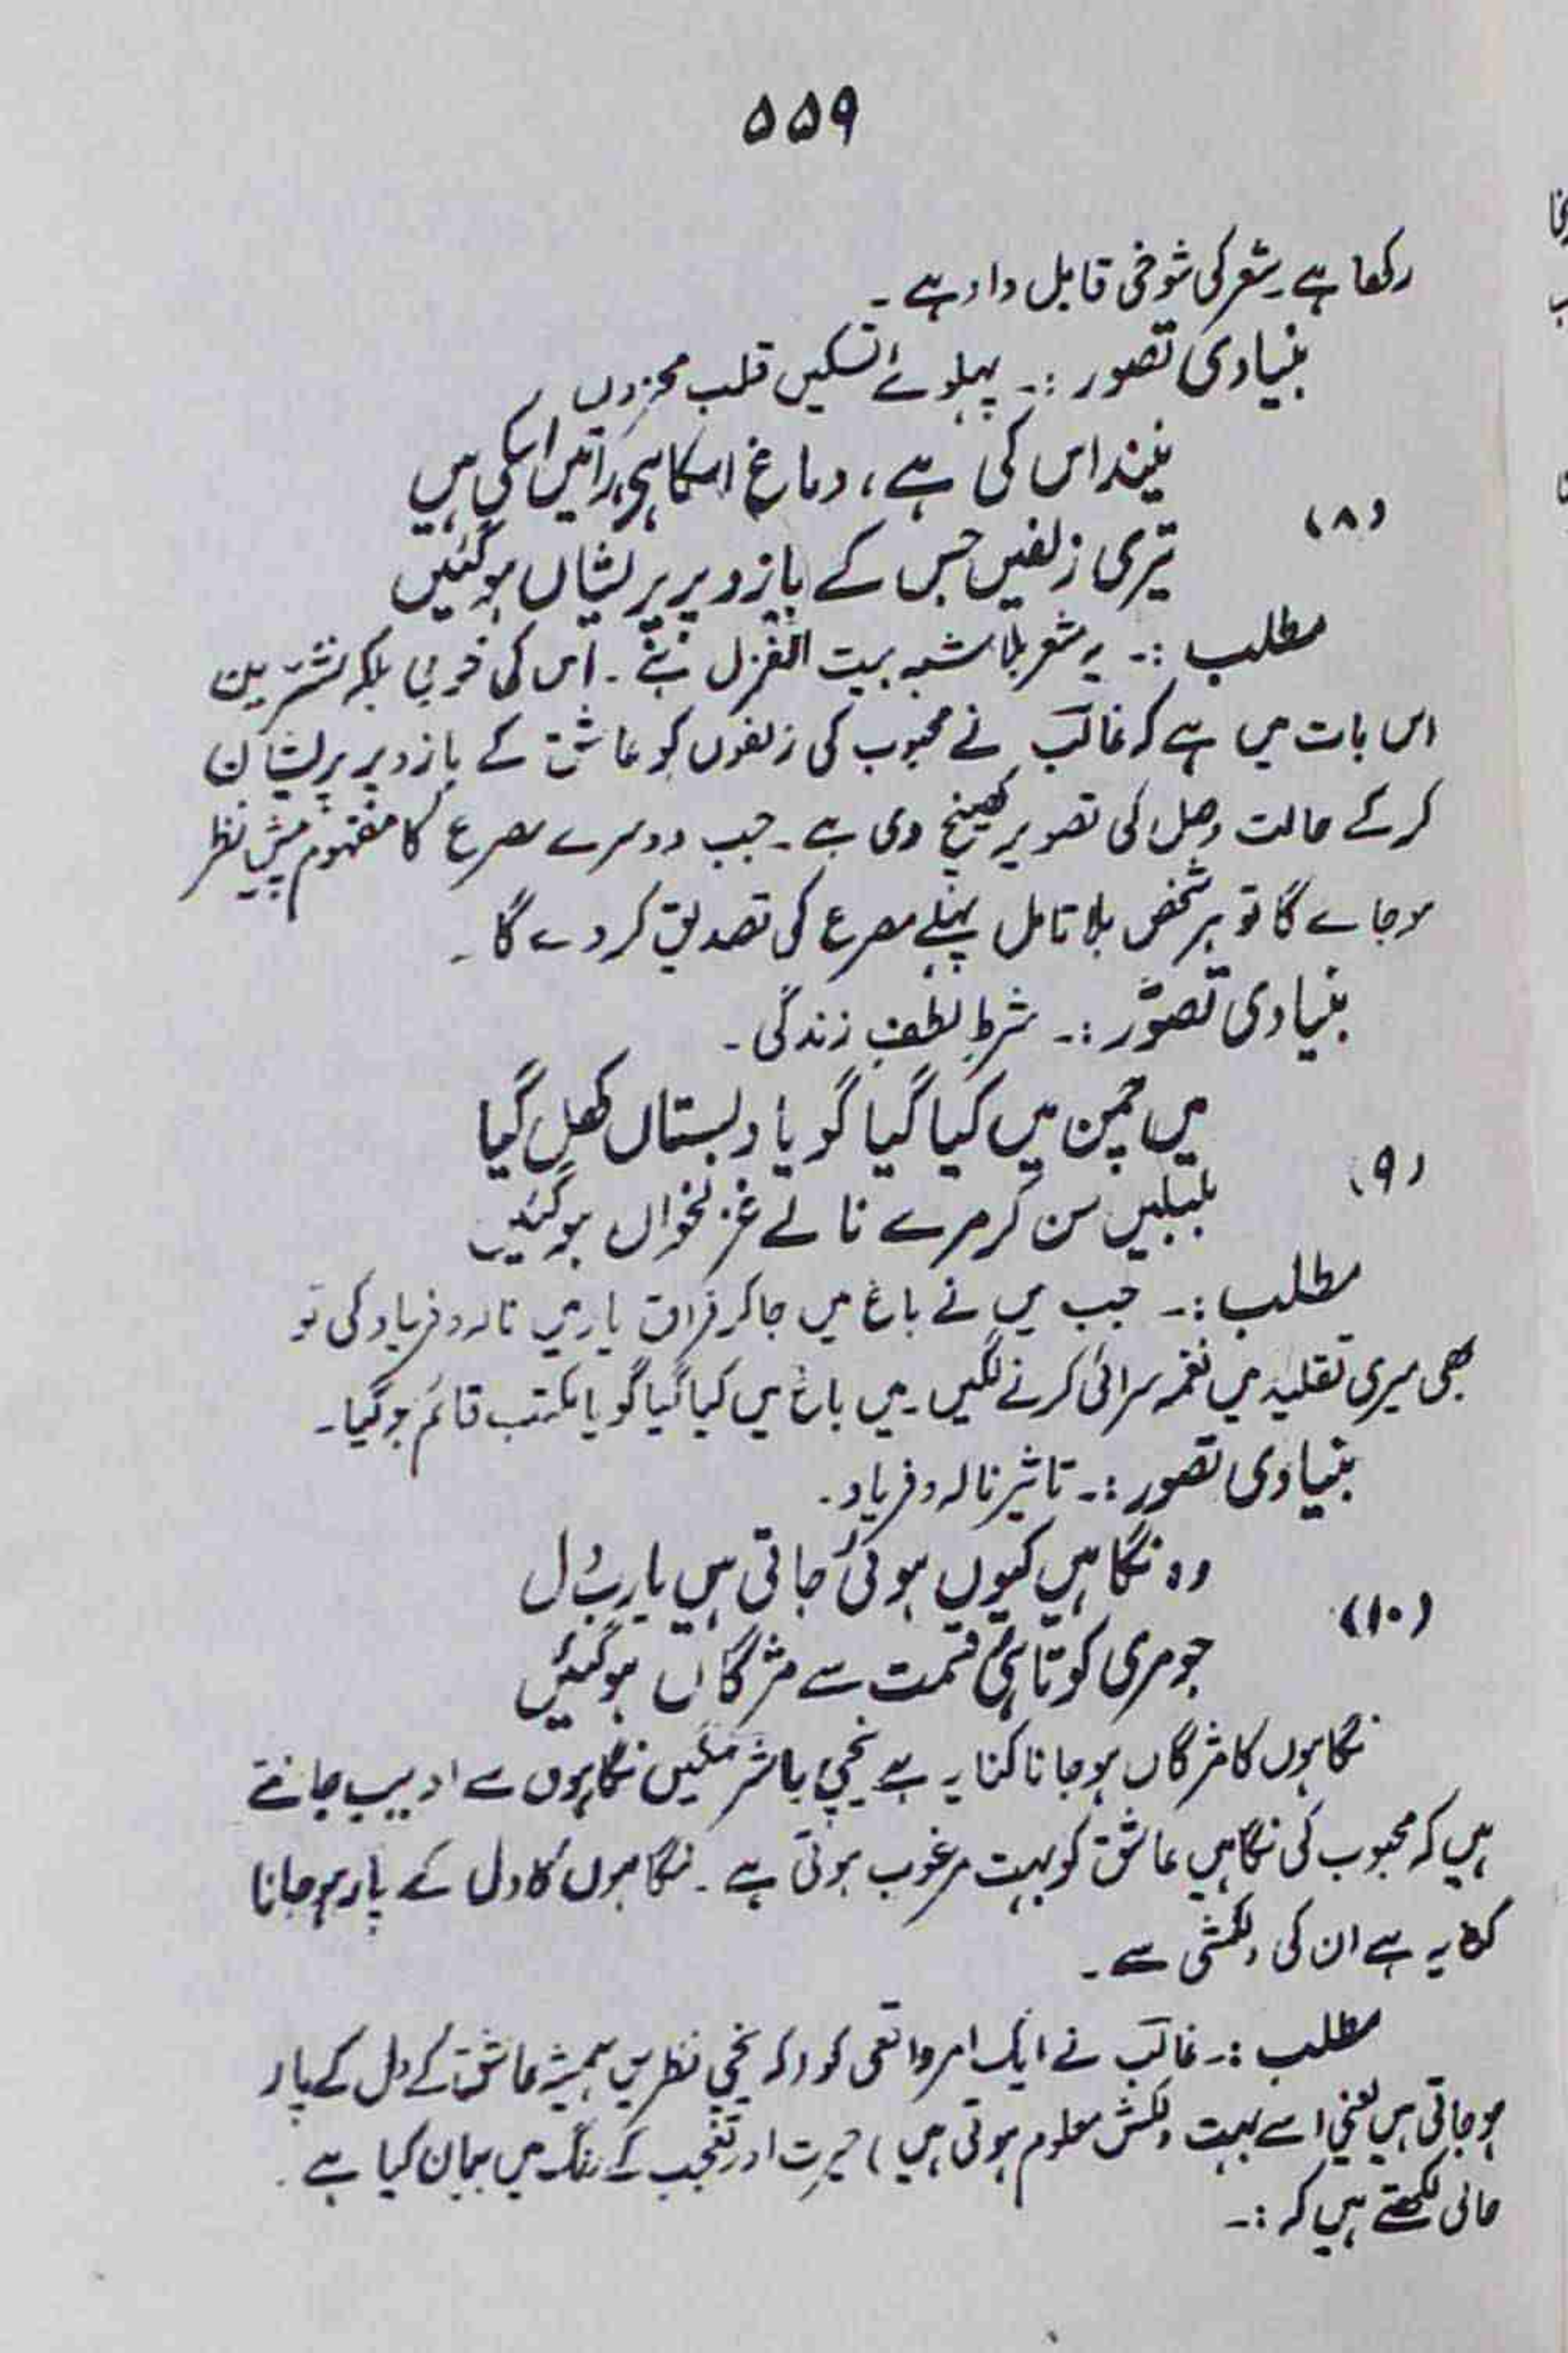 ۵۵۹
رکھا ہے۔ شعر کی شوخی قابل داد ہے۔
بنیادی تصور :۔ پہلوئے تسکیں قلب محزوں
نیند اس کی ہے، دماغ اسکا ہی، راتیں اسکی ہیں
(۸)
تیری زلفیں جس کے بازو پر پریشاں ہوگئیں
مطلب :۔ یہ شعر بلا شبہ بیت الغزل ہے۔ اس کی خوبی بلکہ نشتریت
اس بات میں ہے کہ غالبؔ نے محبوب کی زلفوں کو عاشق کے بازو پر پریشان
کرکے حالت وصل کی تصویر کھینچ دی ہے۔ جب دوسرے مصرع کا مفہوم پیش نظر
ہوجاے گا تو ہر شخص بلا تامل پہلے مصرع کی تصدیق کردے گا۔
بنیادی تصوّر :۔ شرطِ لطفِ زندگی۔
میں چمن میں کیا گیا گویا دبستاں کھل گیا
(۹)
بلبلیں سن کر مرے نالے غزلخواں ہوگئیں
مطلب :۔ جب میں نے باغ میں جاکر فراق یار میں نالہ و فریاد کی تو
بھی میری تقلید میں نغمہ سرائی کرنے لگیں۔ میں باغ میں کیا گیا گویا مکتب قائم ہوگیا۔
بنیادی تصور :۔ تاثیر نالہ و فریاد۔
وہ نگاہیں کیوں ہوئی جاتی ہیں یارب دل
(۱۰)
جو مری کوتاہیٔ قسمت سے مژگاں ہوگئیں
نگاہوں کا مژگاں ہوجانا کنایہ ہے نیچی یا شرمگیں نگاہوں سے ادیب جانتے
ہیں کہ محبوب کی نگاہیں عاشق کو بہت مرغوب ہوتی ہے۔ نگاہوں کا دل کے پار ہوجانا
کنایہ ہے ان کی دلکشی سے۔
مطلب :۔ غالبؔ نے ایک امر واقعی کو (کہ نیچی نظریں ہمیشہ عاشق کے دل کے پار
ہوجاتی ہیں یعنی اسے بہت دلکش معلوم ہوتی ہیں) حیرت اور تعجب کے رنگ میں بیان کیا ہے۔
حالی لکھتے ہیں کہ :۔